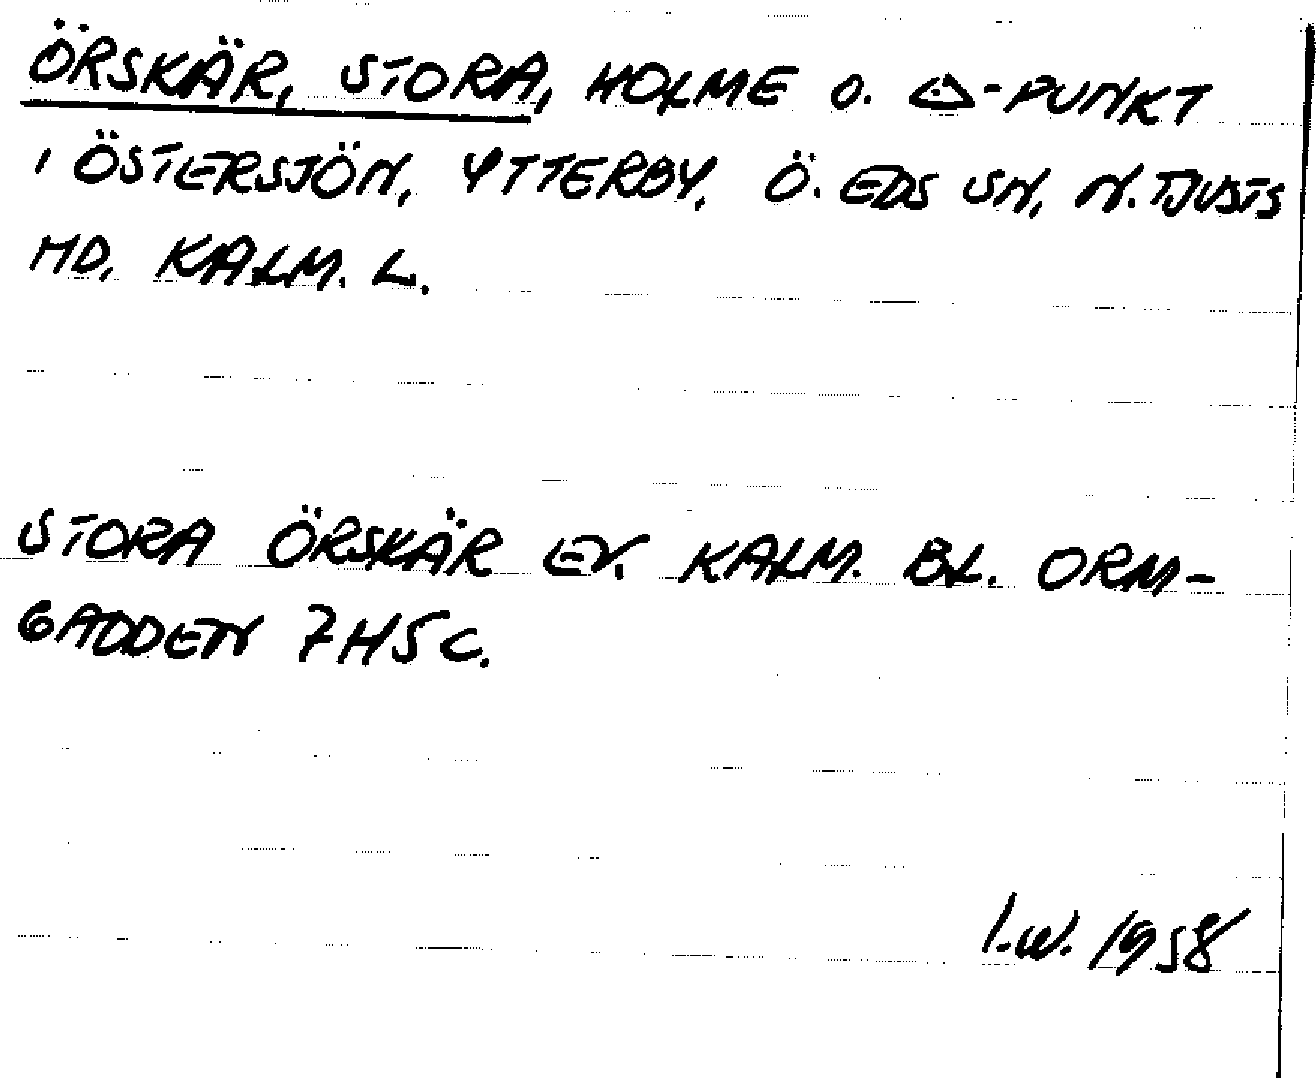 ÖRSKÄR, STORA, HOLME O. △-PUNKT
I ÖSTERSJÖN, YTTERBY, Ö. EDS SN, N. TJUSTS
HD, KALM. L.
STORA ÖRSKÄR EK. KALM. BL. ORM-
GADDEN 7H5C.
I.W. 1958